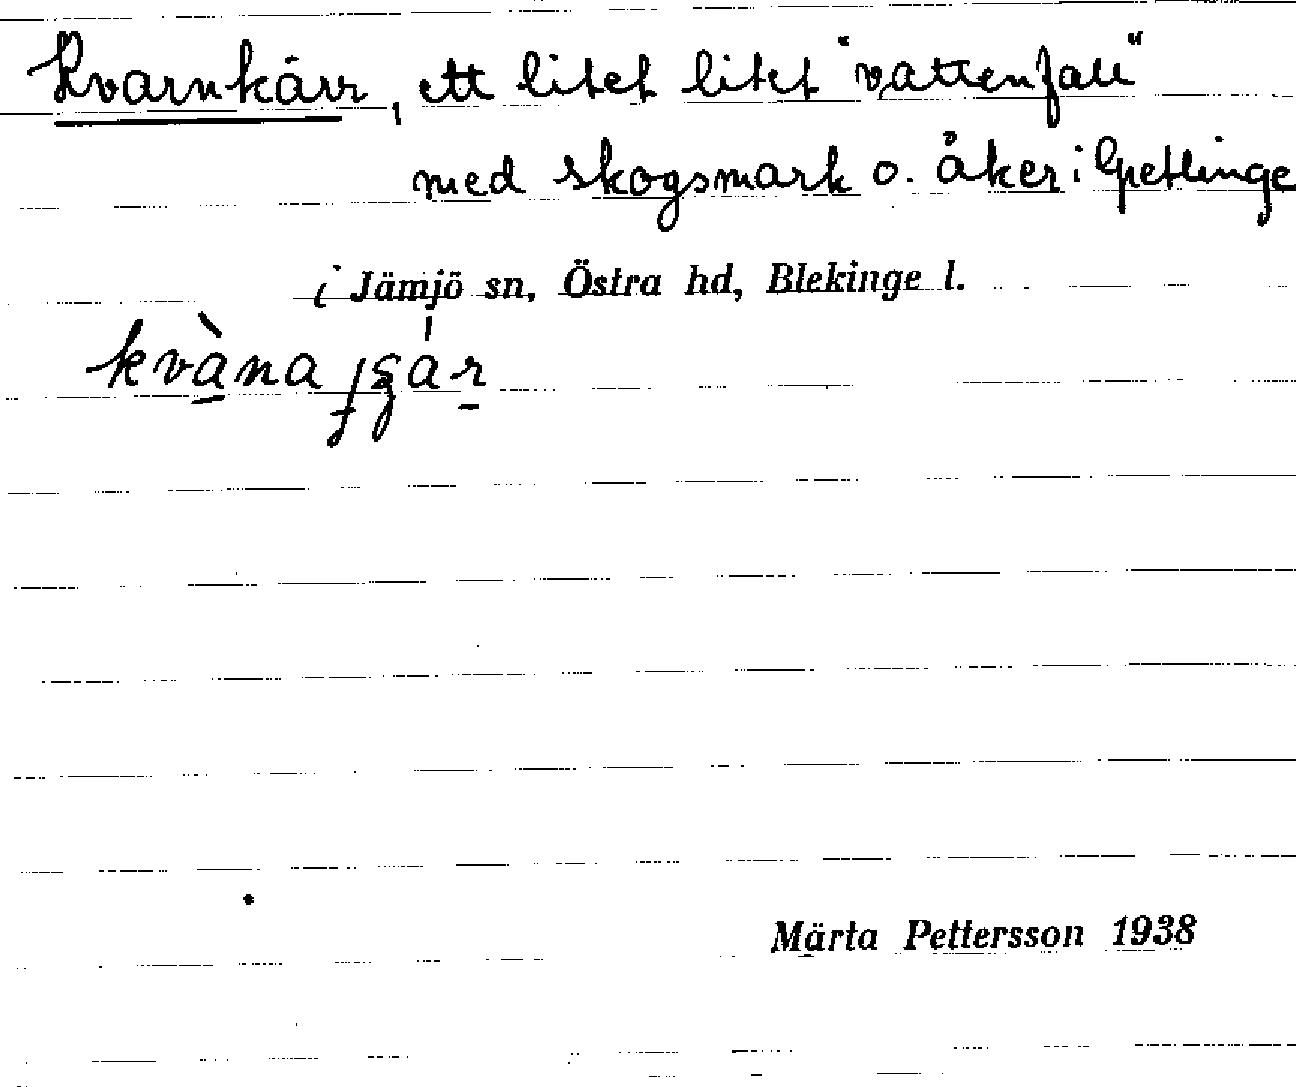 Kvarnkärr, ett litet litet "vattenfall"
med skogsmark o. åker i Gretlinge
i Jämjö sn, Östra hd, Blekinge l.
Märta Pettersson 1938